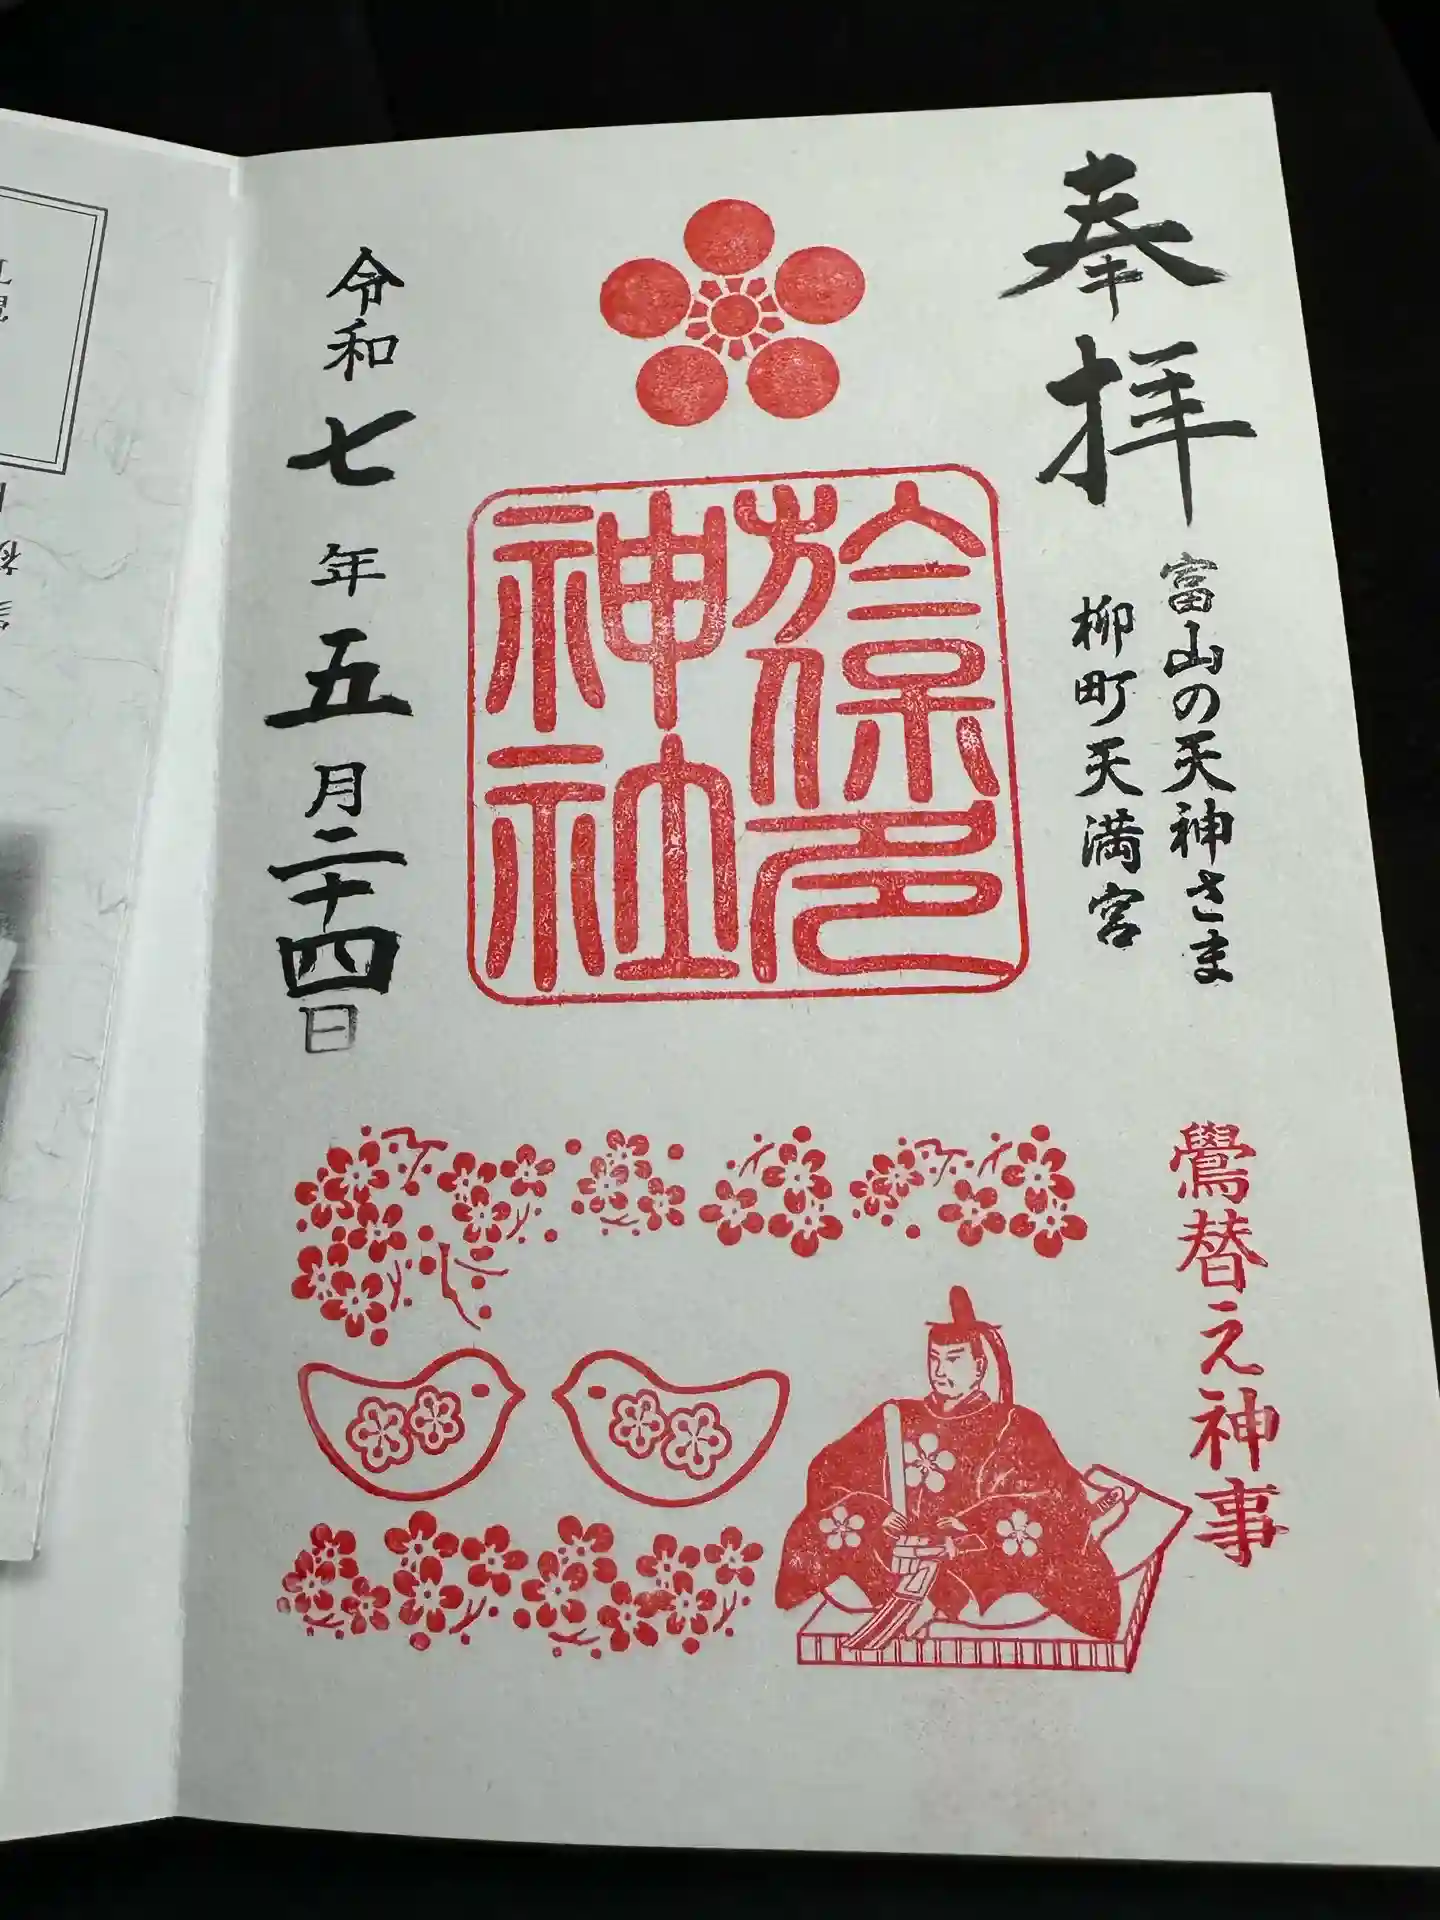 奉拝
富山の天神さま
柳町天満宮
於保多
神社
令和七年五月二十四日
鷽替え神事